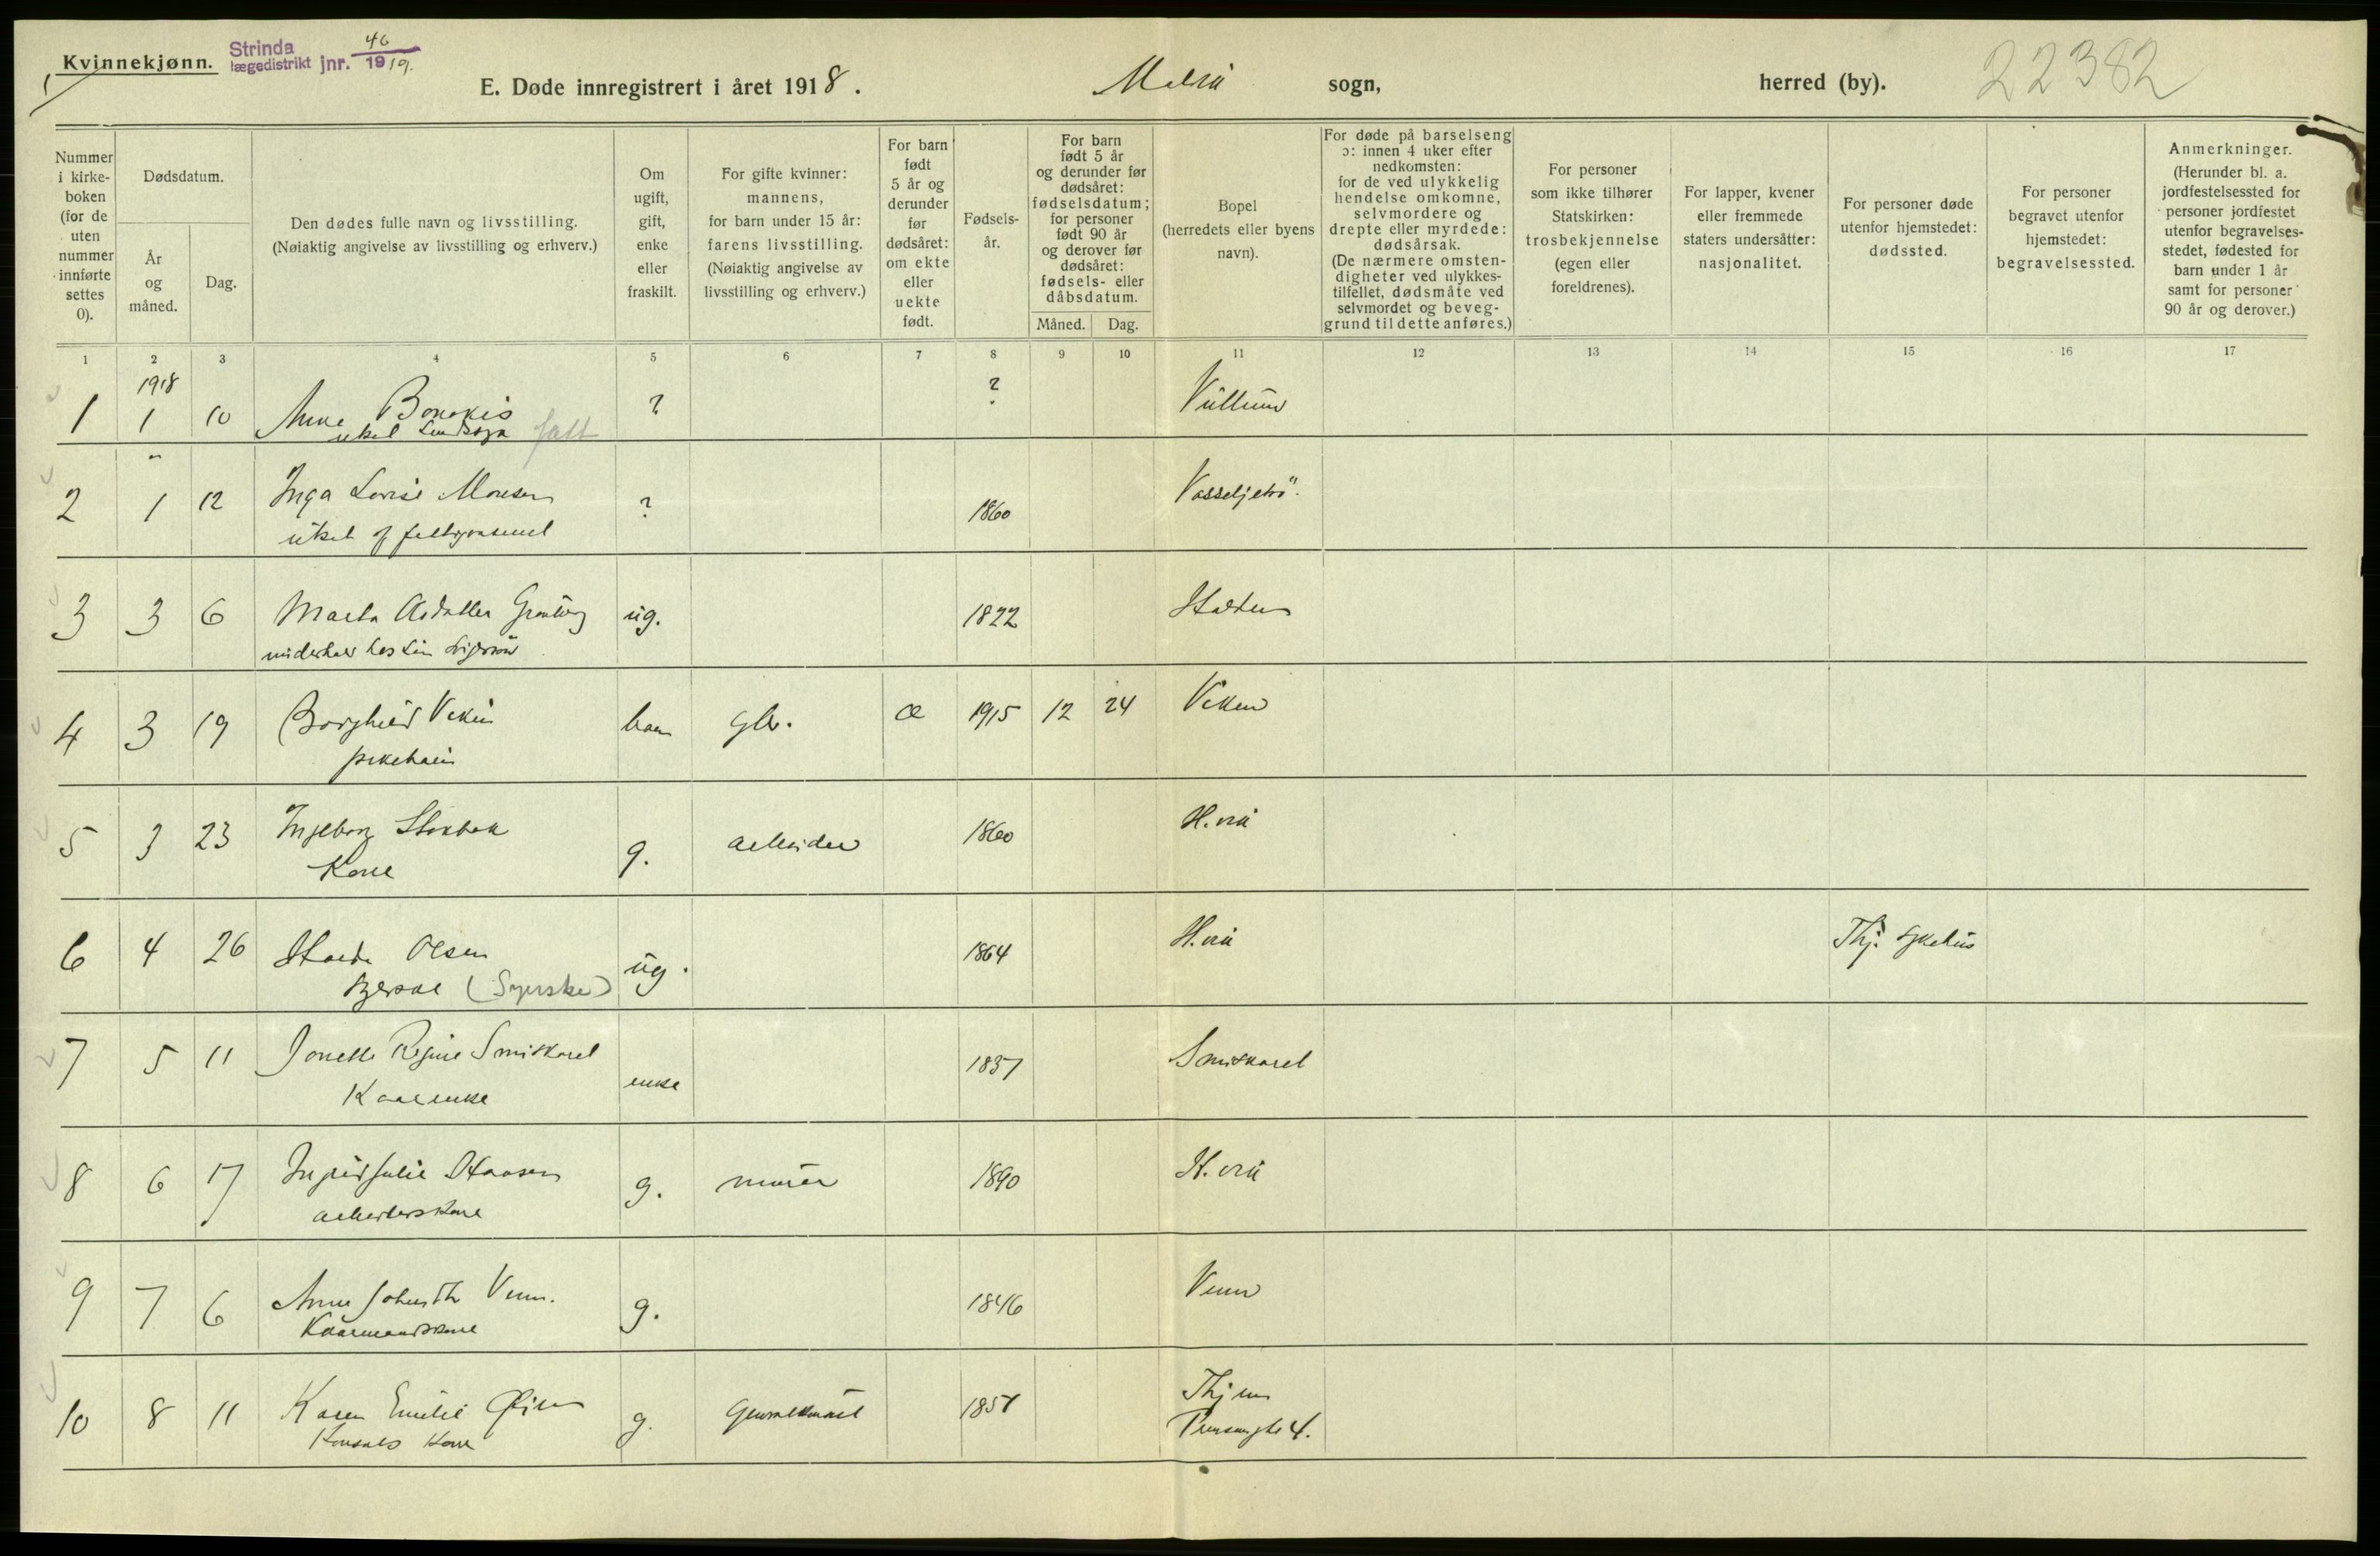 Kvinnekjønn.
Strinda
lægedistrikt jnr. 46 1919.
E. Døde innregistrert i året 1918. Malvik sogn, herred (by). 22382
Nummer i kirkeboken (for de uten nummer innførte settes 0).
Dødsdatum.
År og måned.
Dag.
Den dødes fulle navn og livsstilling.
(Nøiaktig angivelse av livsstilling og erhverv.)
Om ugift, gift, enke eller fraskilt.
For gifte kvinner: mannens, for barn under 15 år: farens livsstilling.
(Nøiaktig angivelse av livsstilling og erhverv.)
For barn født 5 år og derunder før dødsåret: om ekte eller uekte født.
Fødselsår.
For barn født 5 år og derunder før dødsåret: fødselsdatum; for personer født 90 år og derover før dødsåret: fødsels- eller dåbsdatum.
Måned.
Dag.
Bopel
(herredets eller byens navn).
For døde på barselseng ɔ: innen 4 uker efter nedkomsten: for de ved ulykkelig hendelse omkomne, selvmordere og drepte eller myrdede: dødsårsak.
(De nærmere omstendigheter ved ulykkestilfellet, dødsmåte ved selvmordet og beveggrund til dette anføres.)
For personer som ikke tilhører Statskirken: trosbekjennelse (egen eller foreldrenes).
For lapper, kvener eller fremmede staters undersåtter: nasjonalitet.
For personer døde utenfor hjemstedet: dødssted.
For personer begravet utenfor hjemstedet: begravelsessted.
Anmerkninger.
(Herunder bl. a. jordfestelsessted for personer jordfestet utenfor begravelsesstedet, fødested for barn under 1 år samt for personer 90 år og derover.)
1 2 3 4 5 6 7 8 9 10 11 12 13 14 15 16 17
1918
1 1 10 Anne ? ?
2 1 12 Inga Lovise Monsen ? 1860
3 3 6 Marta ug. 1822
4 3 19 Borghild Viken barn gbr. æ 1915 12 24 Viken
pikebarn
5 3 23 Ingeborg g. arbeider 1860 H.vik
Kone
6 4 26 Olsen ug. 1864 H.vik Thj. sykehus
(Syerske)
7 5 11 Jonette Regine Smiskaret enke 1837 Smiskaret
Kaarenke
8 6 17 Ingrid Julie Hansen g. murer 1890 H.vik
arbeiderskone
9 7 6 Anne Venn. g. 1846 Venn
Kaarmandskone
10 8 11 Karen Emilie g. 1857 Thjem
Konsuls kone 4.